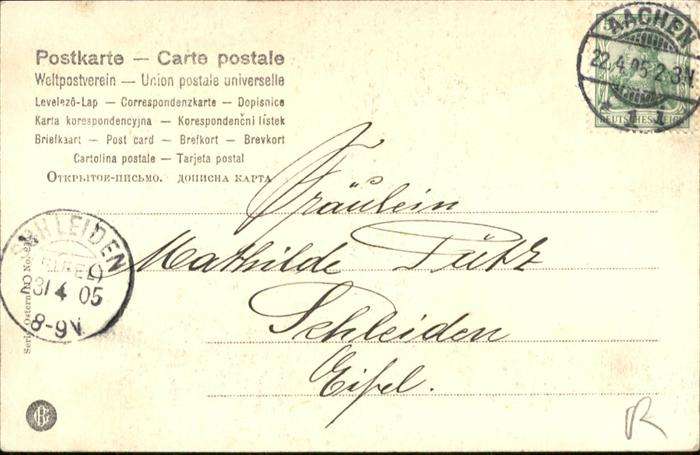 Postkarte — Carte postale
Weltpostverein — Union postale universelle
Levelező-Lap — Correspondenzkarte — Dopisnice
Karta korespondencyjna — Korespondenční lístek
Briefkaart — Post card — Brefkort — Brevkort
Cartolina postale — Tarjeta postal
Открытое-письмо. дописна карта
AACHEN
22.4.05
1
DEUTSCHES REICH
Fräulein
Mathilde Pütz
Schleiden
Eifel.
SCHLEIDEN
23/4 05
8-9V.